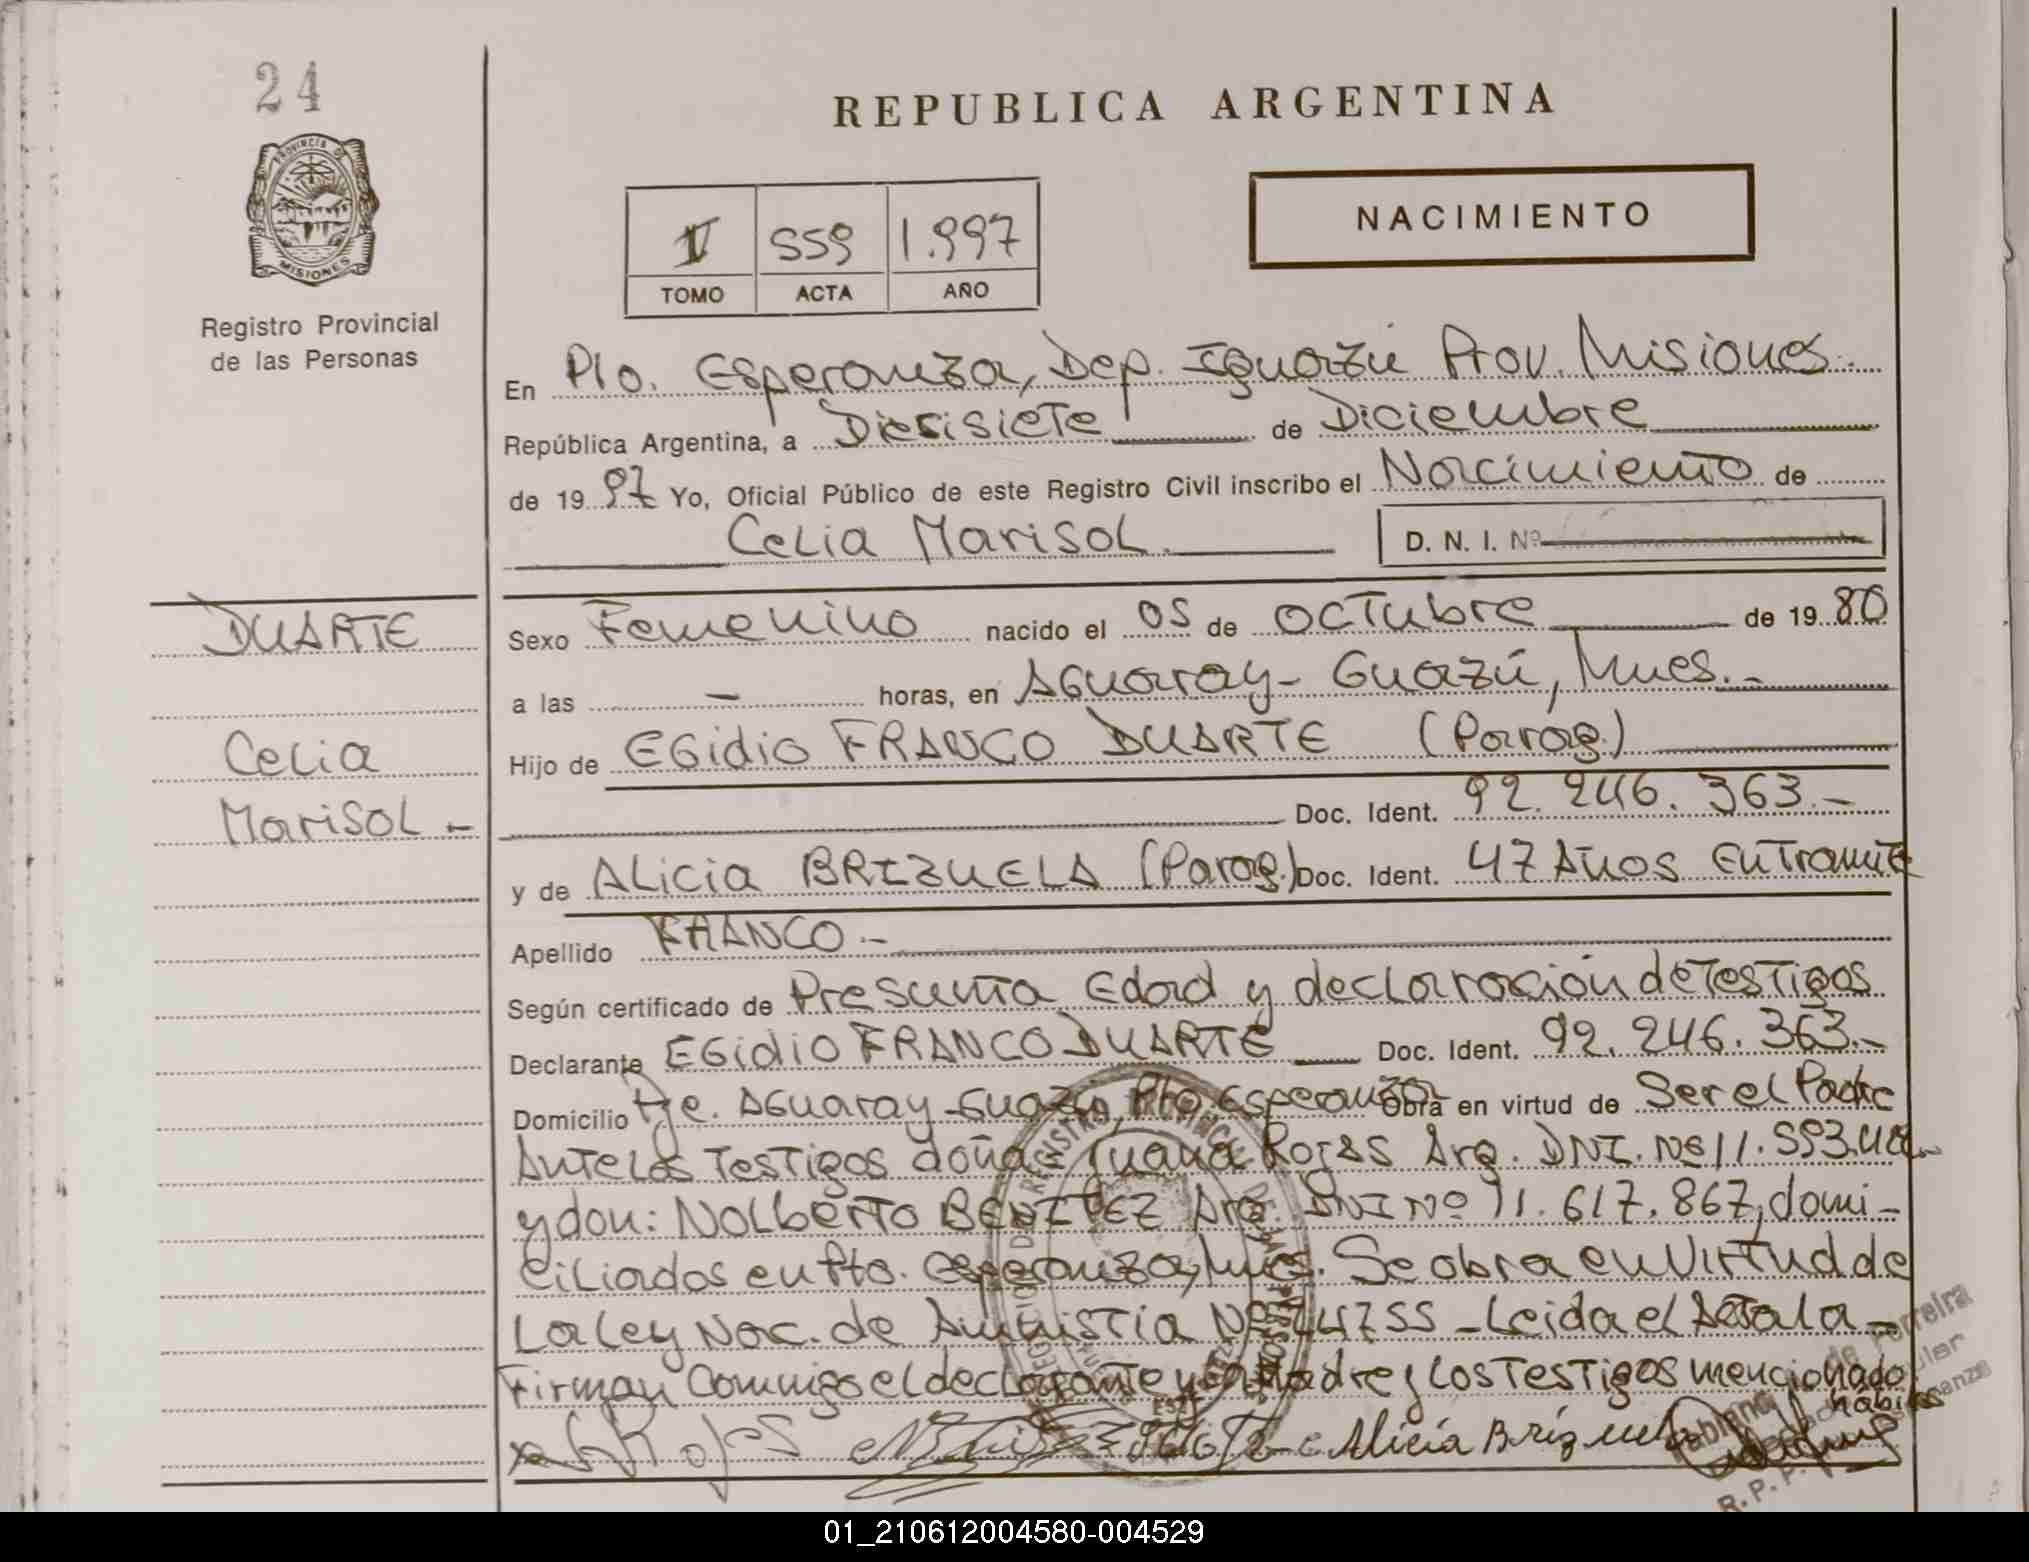 24
REPUBLICA ARGENTINA
PROVINCIA DE
MISIONES
NACIMIENTO
V 559 1.997
TOMO ACTA AÑO
Registro Provincial
de las Personas
En Pto. Esperanza, Dep. Iguazú Prov. Misiones.
República Argentina, a Diesisiete de Diciembre
de 19 97 Yo, Oficial Público de este Registro Civil inscribo el Nacimiento de
Celia Marisol. D. N. I. Nº
DUARTE
Celia
Marisol.-
Sexo Femenino nacido el 05 de OCTubre de 19 80
a las - horas, en Aguaray-Guazú, Mnes.-
Hijo de EGidio FRANCO DUARTE (Parag.)
Doc. Ident. 92.246.363.-
y de ALicia BRIZUELA (Parag.) Doc. Ident. 47 Años EnTramite
Apellido FRANCO.-
Según certificado de Presunta Edad y declaración de Testigos
Declarante EGidio FRANCO DUARTE Doc. Ident. 92.246.363.-
Domicilio Pje. Aguaray-Guazú, Pto Esperanza Obra en virtud de Ser el Padre
Ante los Testigos doña: Juana Rojas Arg. DNI. Nº 11.593.
y don: NOLberto BENITEZ Arg. DNI Nº 11.617.867, domi-
ciliados en Pto. Esperanza, Mnes. Se obra en Virtud de
La Ley Nac. de Amnistia Nº 24755 - Leida el Acta la -
Firman Conmigo el declarante y la Madre y Los Testigos mencionado
hábiles
Rojas Alicia Brizuela
Ferreira
R.P.P.
01_210612004580-004529